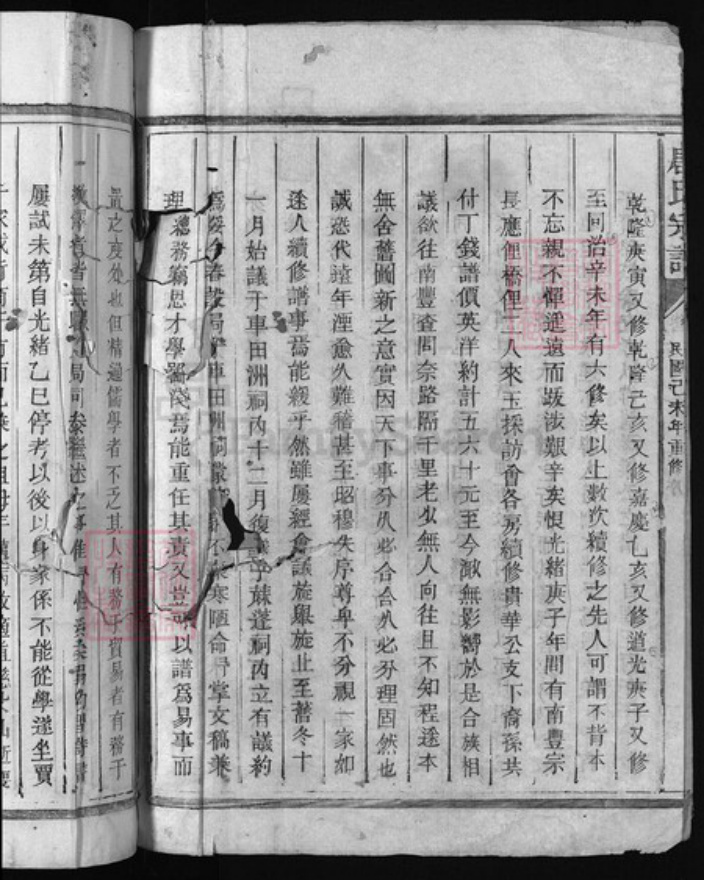 氏宗譜
民國己未年重修
乾隆庚寅又修乾隆己亥又修嘉慶乙亥又修道光庚子又修
至同治辛未年有六修矣以上數次續修之先人可謂不背本
不忘親不憚遥遠而跋涉艱辛矣恨光緒庚子年間有南豐宗
長應俚橋俚二人來玉採訪會各房續修貴華公支下裔孫共
付丁錢譜價英洋約計五六十元至今渺無影響於是合族相
議欲往南豐查問奈路隔千里老少無人向往且不知程途本
無舍舊圖新之意實因天下事分久必合合久必分理固然也
誠恐代遠年湮愈久難稽甚至昭穆失序尊卑不分視一家如
途人續修譜事焉能緩乎然雖屢經會議旋舉旋止至舊冬十
一月始議于車田洲祠內十二月復議于蔴蓬祠內立有議約
爲 今春 局 車田洲祠 不 寒陋命 掌文稿兼
理總務竊思才學 淺焉能重任其責又豈可以譜爲易事而
之度外也但精通儒學者不乏其人有務于貿易者有務于
局司
屢試未第自光緒乙巳停考以後以身家係不能從學遂坐賈